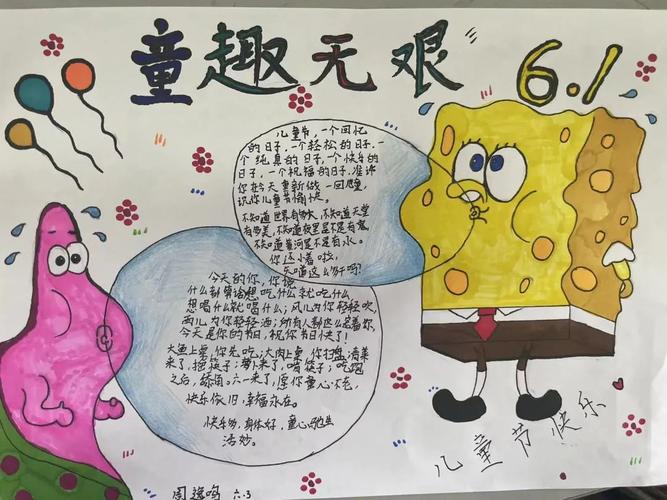 童趣无艰
6.1
儿童节，一个回忆
的日子，一个轻松的日子，一
个纯真的日子，一个快乐的
日子，一个祝福的日子，准许
你在今天重新做一回童，
祝你儿童节愉快。
不知道世界有多大，不知道天堂
有多美，不知道夜里是不是有鬼
不知道黄河是不是有水。
你还小着啦，
知道这么多干吗？
今天的你，你说
什么别客话想吃什么就吃什么
想喝什么就喝什么；风儿为你轻轻吹，
雨儿为你轻轻洒；所有人都这么宠着你，
今天是你的节日，祝你节日快了！
大鱼上桌，你先吃；大肉上桌，你扫盘；清菜
来了，挑筷子；萝卜来了，唱筷子；吃
之后，舔角，六一来了，愿你童心不
快乐依旧，幸福永在。
快乐多，身体好，童心
活妙。
儿童节快乐
周逸鸣 六.3